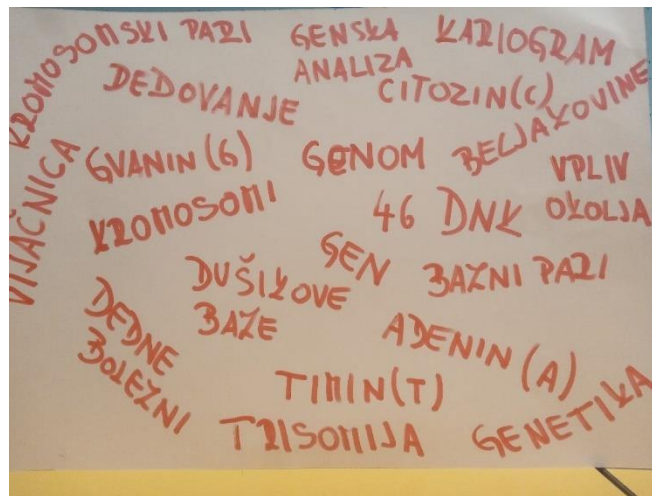 KROMOSOMSKI PARI
GENSKA
ANALIZA
KARIOGRAM
DEDOVANJE
CITOZIN(C)
BELJAKOVINE
VIJAČNICA
GVANIN(G)
GENOM
VPLIV
OKOLJA
KROMOSOMI
46
DNK
GEN
DUŠIKOVE
BAZE
BAZNI PARI
DEDNE
BOLEZNI
ADENIN(A)
TIMIN(T)
TRISOMIJA
GENETIKA